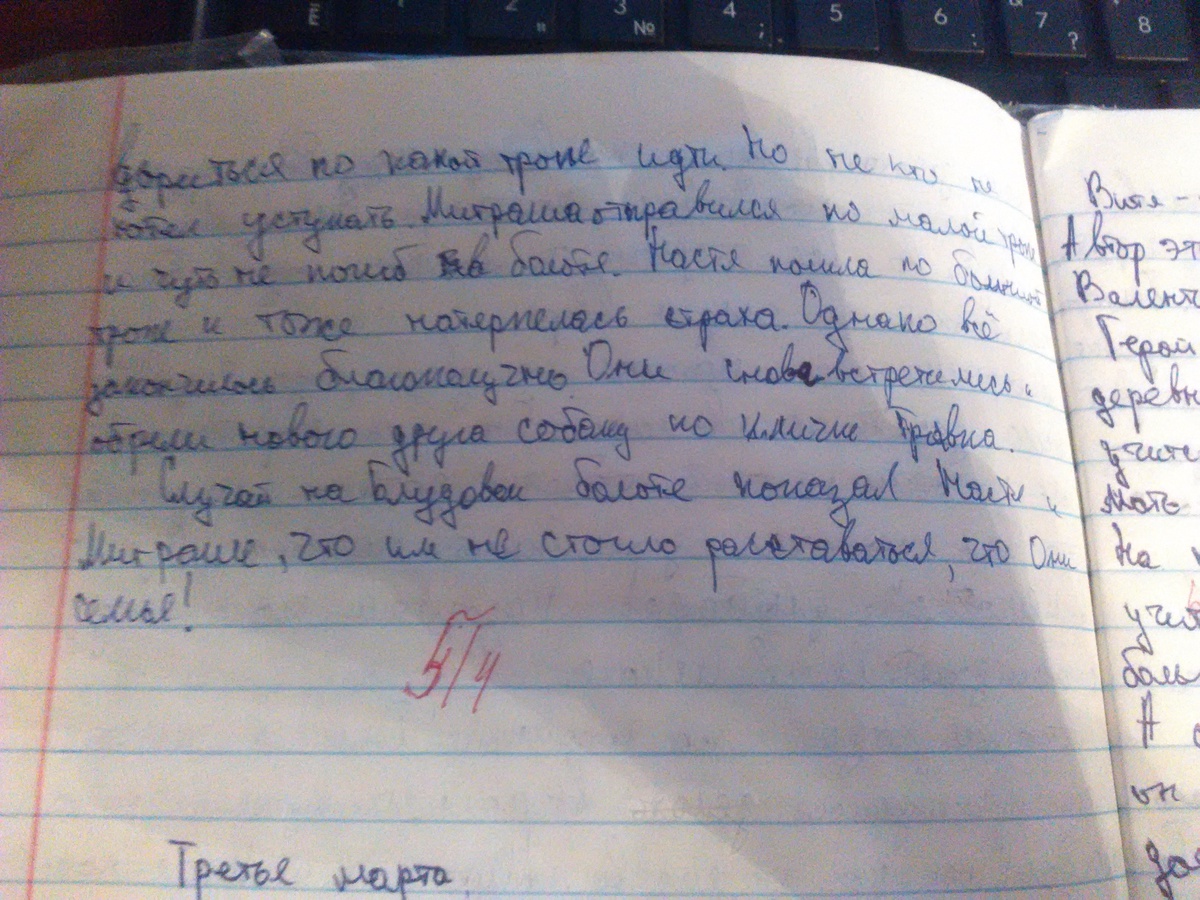 Ё 2 " 3 № 4 ; 5 6 : 7 ? 8
по какой тропе идти. Но не кто не
хотел уступать. Митраша отправился по малой тропе
и чуть не погиб в болоте. Настя пошла по большой
тропе и тоже натерпелась страха. Однако всё
закончилось благополучно. Они снова встретились и
обрели нового друга собаку по кличке Травка.
Случай на Блудовом болоте показал Насти и
Митраше, что им не стоило расставаться, что Они
семья!
5/4
Третье марта.
Витя -
Автор эт
Валент
Герой
деревн
учите
мать
На
учит
боль
А с
он